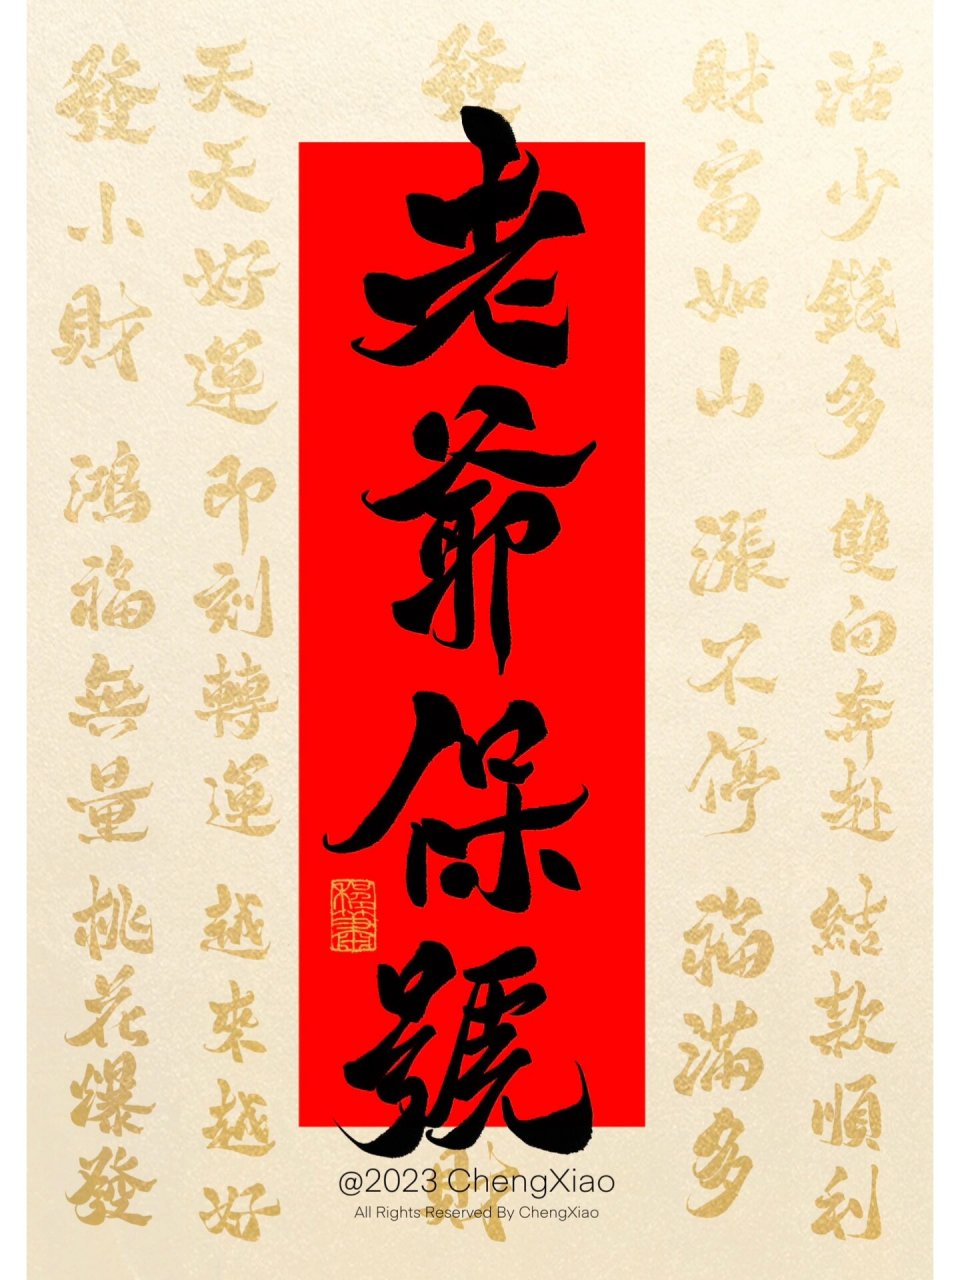 活少錢多 雙向奔赴 結款順利
財富如山 漲不停 福滿多
發
老爺保號
財
天天好運 即刻轉運 越來越好
發小財 鴻福無量 桃花爆發
@2023 ChengXiao
All Rights Reserved By ChengXiao